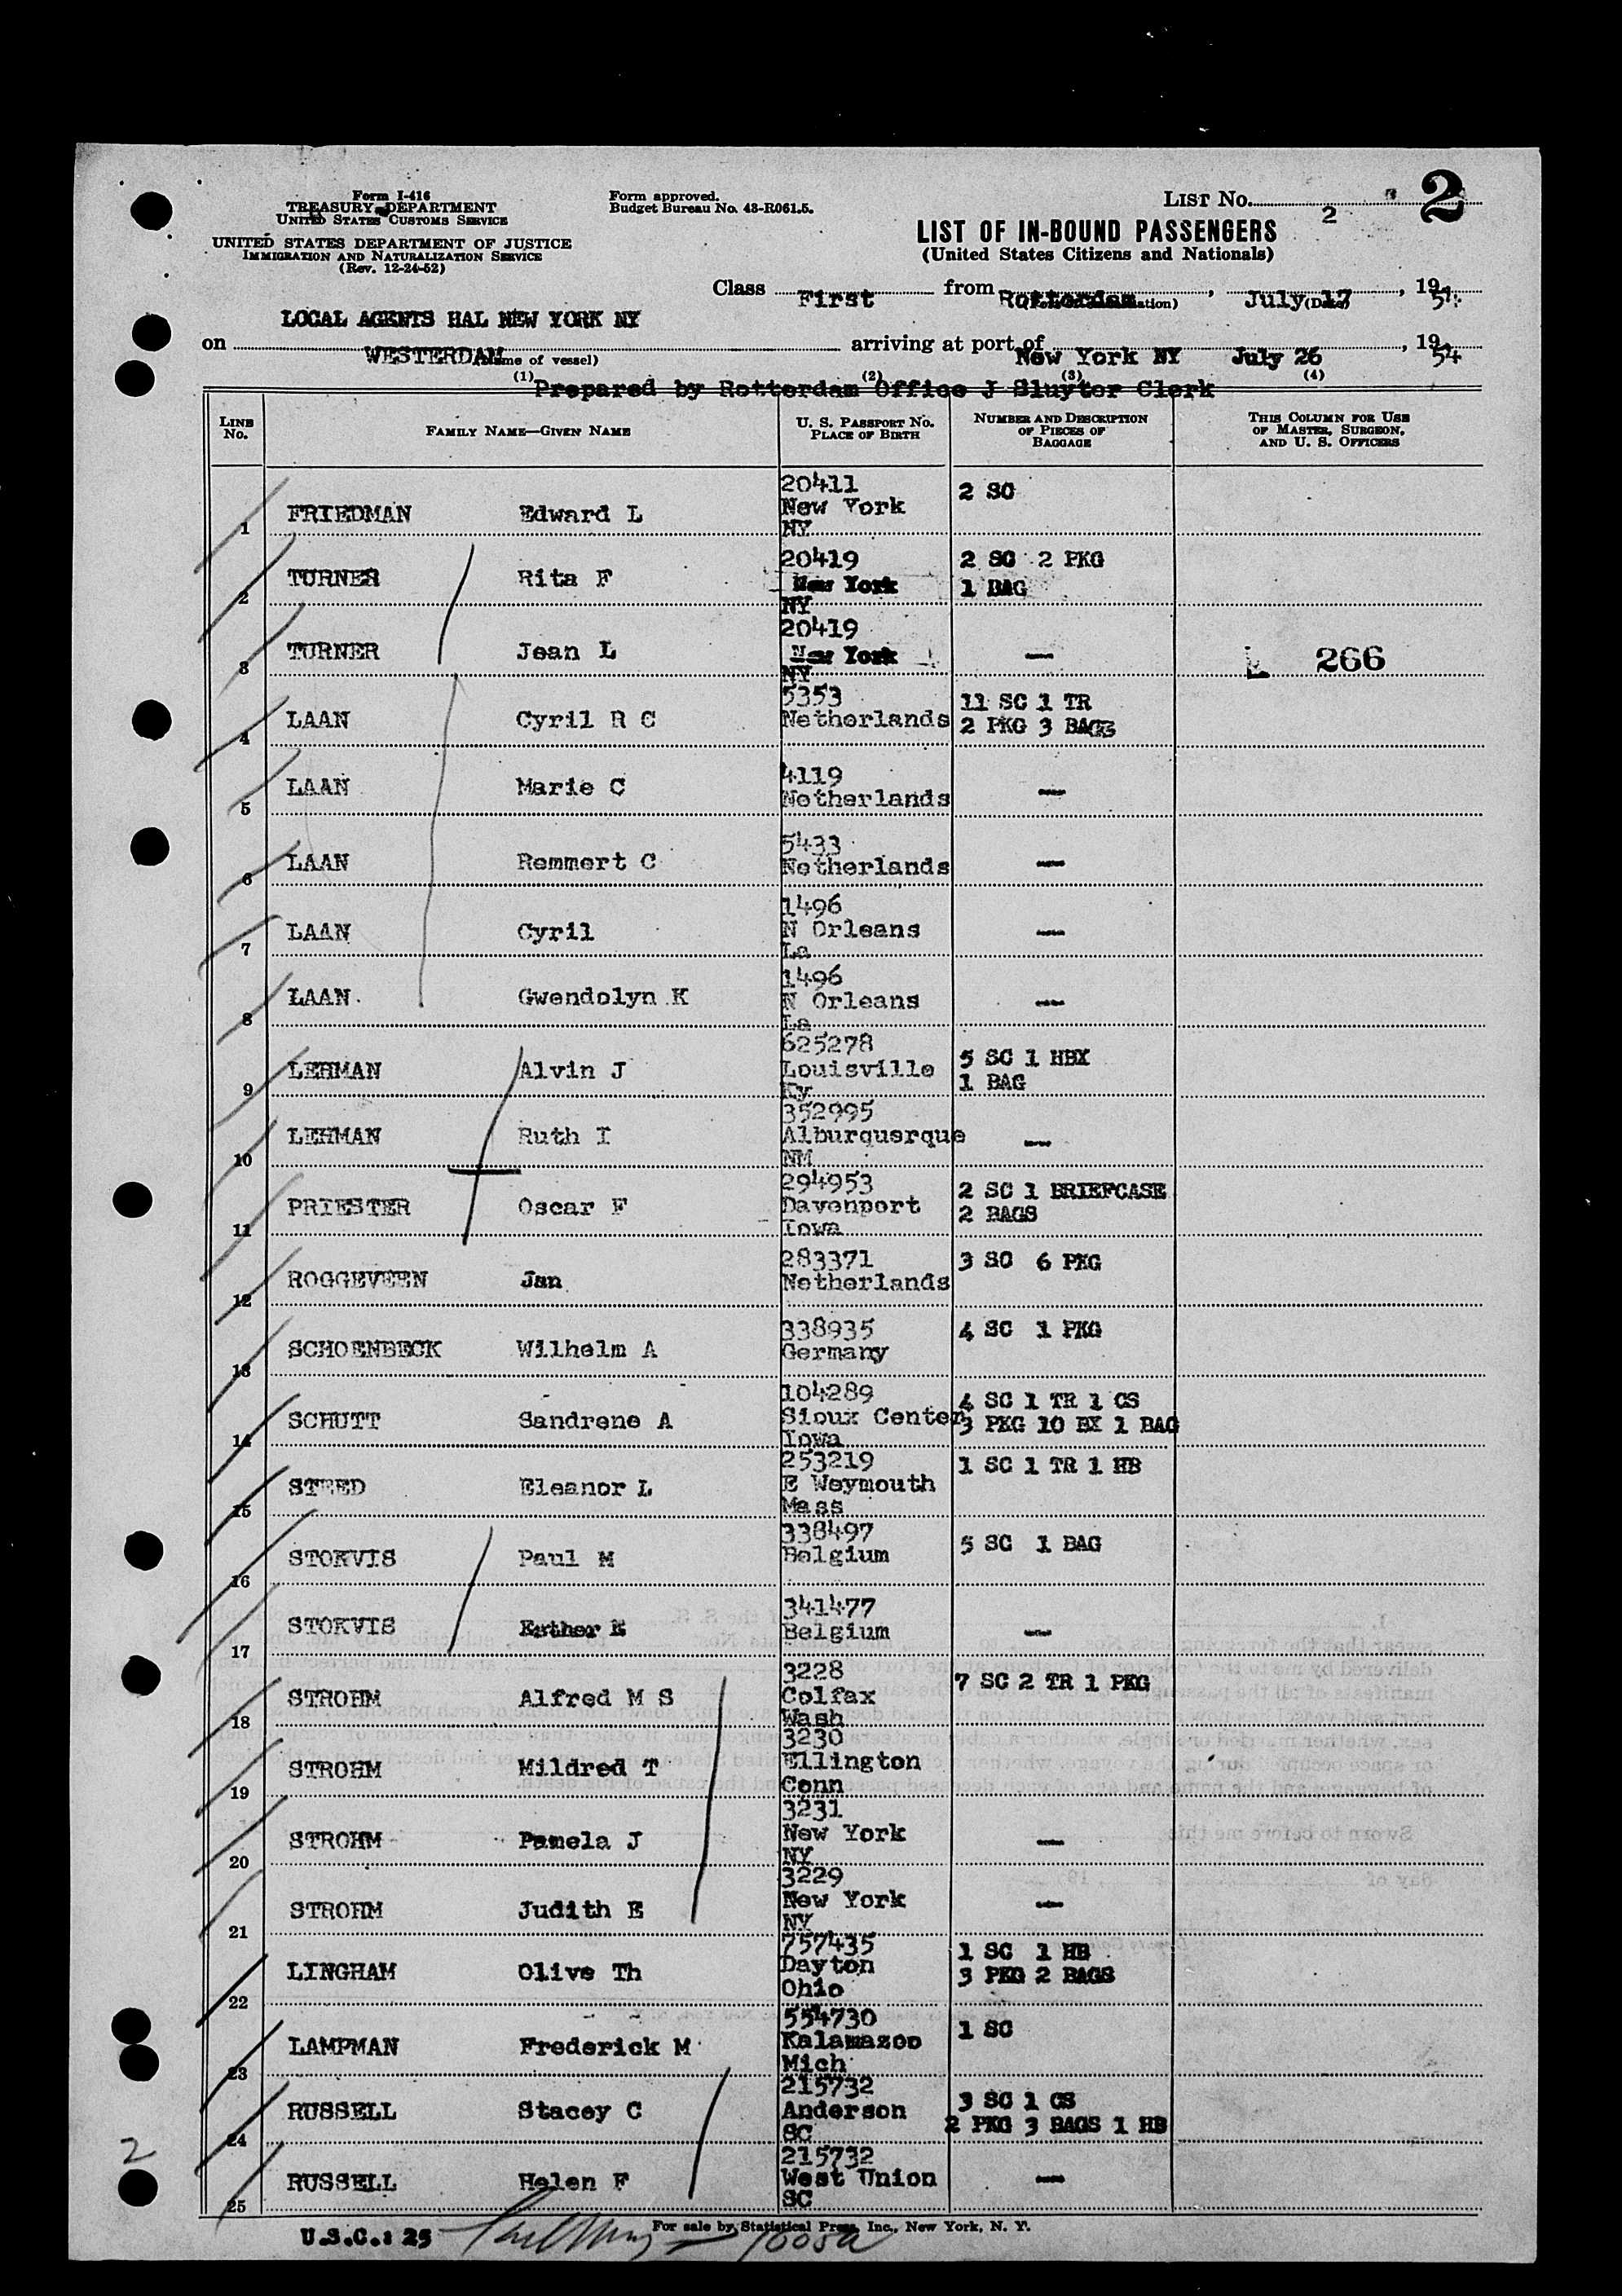 Form I-416
TREASURY DEPARTMENT
UNITED STATES CUSTOMS SERVICE
UNITED STATES DEPARTMENT OF JUSTICE
IMMIGRATION AND NATURALIZATION SERVICE
(Rev. 12-24-52)
Form approved.
Budget Bureau No. 43-R061.5.
LIST No. 2
2
LIST OF IN-BOUND PASSENGERS
(United States Citizens and Nationals)
Class First from Rotterdam, July 17, 1954
LOCAL AGENTS HAL NEW YORK NY
on WESTERDAM (Name of vessel) arriving at port of New York NY July 26, 1954
(1) (2) (3) (4)
Prepared by Rotterdam Office J Sluyter Clerk
LINE No. FAMILY NAME—GIVEN NAME U. S. PASSPORT No. PLACE OF BIRTH NUMBER AND DESCRIPTION OF PIECES OF BAGGAGE THIS COLUMN FOR USE OF MASTER, SURGEON, AND U. S. OFFICERS
1 FRIEDMAN Edward L 20411 New York NY 2 SC
2 TURNER Rita F 20419 New York NY 2 SC 2 PKG 1 BAG
3 TURNER Jean L 20419 New York NY — 266
4 LAAN Cyril R C 5353 Netherlands 11 SC 1 TR 2 PKG 3 BAGS
5 LAAN Marie C 4119 Netherlands —
6 LAAN Remmert C 5433 Netherlands —
7 LAAN Cyril 1496 N Orleans La —
8 LAAN Gwendolyn K 1496 N Orleans La —
9 LEHMAN Alvin J 625278 Louisville Ky 5 SC 1 HBX 1 BAG
10 LEHMAN Ruth I 352995 Alburquerque NM —
11 PRIESTER Oscar F 294953 Davenport Iowa 2 SC 1 BRIEFCASE 2 BAGS
12 ROGGEVEEN Jan 283371 Netherlands 3 SC 6 PKG
13 SCHOENBECK Wilhelm A 338935 Germany 4 SC 1 PKG
14 SCHUTT Sandrene A 104289 Sioux Center Iowa 4 SC 1 TR 1 CS 3 PKG 10 BX 1 BAG
15 STEED Eleanor L 253219 E Weymouth Mass 1 SC 1 TR 1 HB
16 STOKVIS Paul M 338497 Belgium 5 SC 1 BAG
17 STOKVIS Esther E 341477 Belgium —
18 STROHM Alfred M S 3228 Colfax Wash 7 SC 2 TR 1 PKG
19 STROHM Mildred T 3230 Ellington Conn
20 STROHM Pamela J 3231 New York NY —
21 STROHM Judith E 3229 New York NY —
22 LINGHAM Olive Th 757435 Dayton Ohio 1 SC 1 HB 3 PKG 2 BAGS
23 LAMPMAN Frederick M 554730 Kalamazoo Mich 1 SC
24 RUSSELL Stacey C 215732 Anderson SC 3 SC 1 CS 2 PKG 3 BAGS 1 HB
25 RUSSELL Helen F 215732 West Union SC —
2
U.S.C.: 25
For sale by Statistical Press, Inc., New York, N. Y.